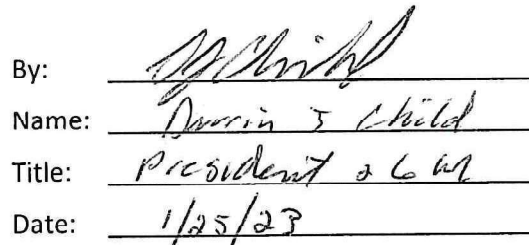 By:
Name: Darrin J Child
Title: President
Date: 1/25/23